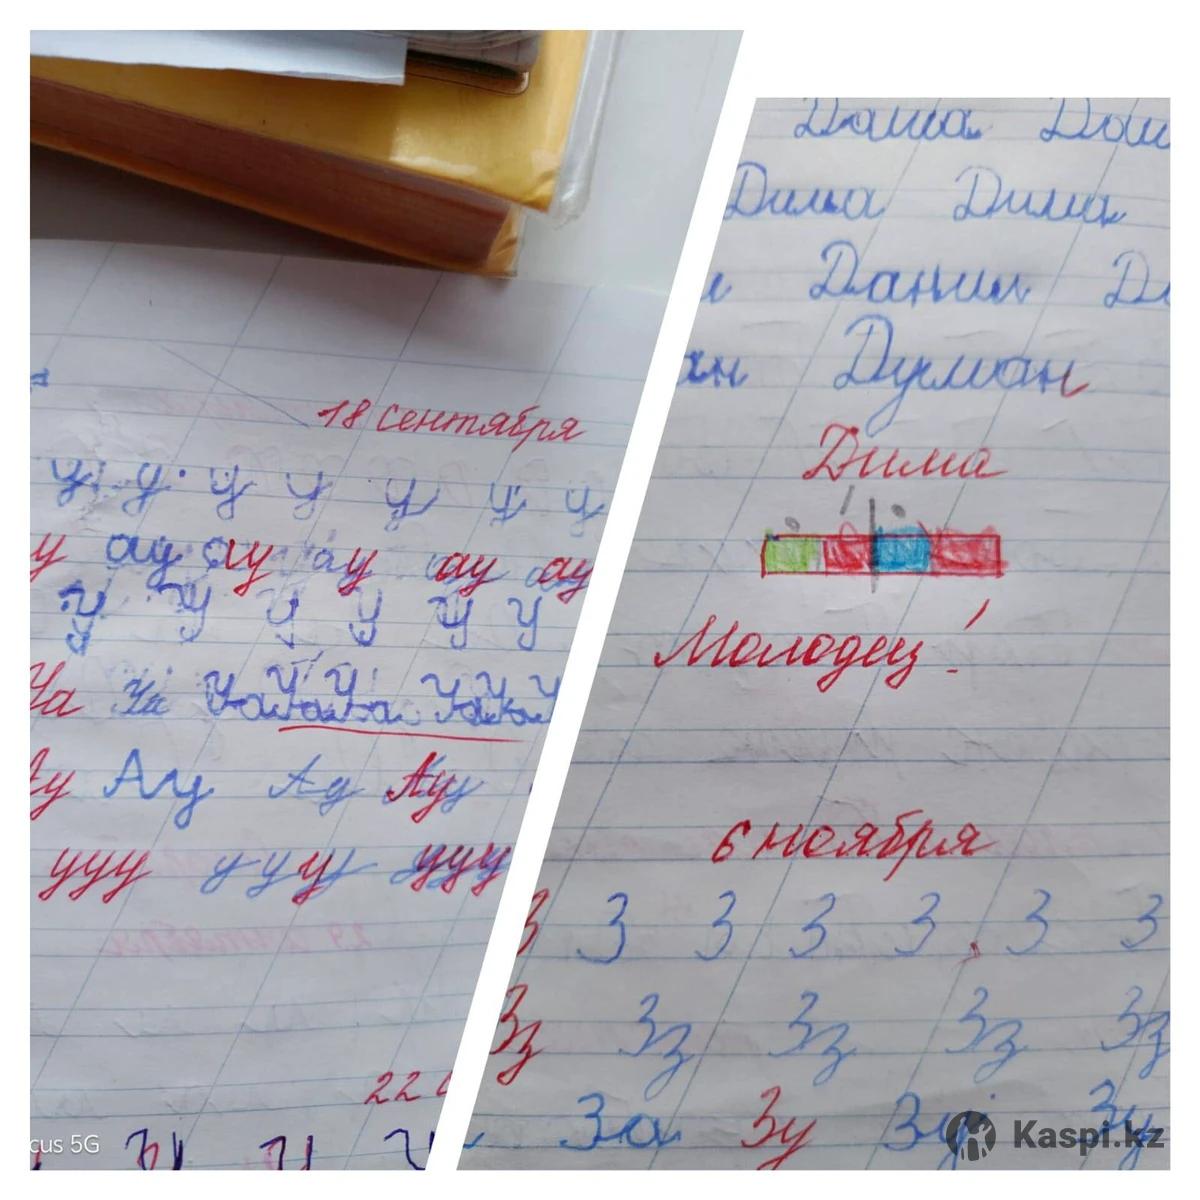 18 сентября
у у у у у у у
у ау ау ау ау ау
у у у у у у
Уа Уа Уа Уа Уа
Ау Ау Ау Ау
ууу уууу ууу
22
cus 5G
Даша Даш
Дима Дима
Данил Д
ан Дулман
Дима
Молодец!
6 ноября
З З З З З З З
Зз Зз Зз Зз Зз
За Зу Зу Зу
Kaspi.kz